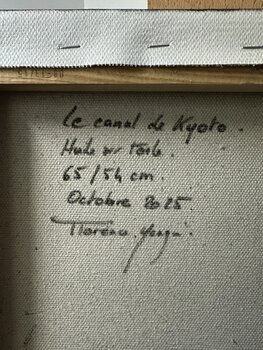 Le canal de Kyoto.
Huile sur toile.
65/54 cm.
Octobre 2025